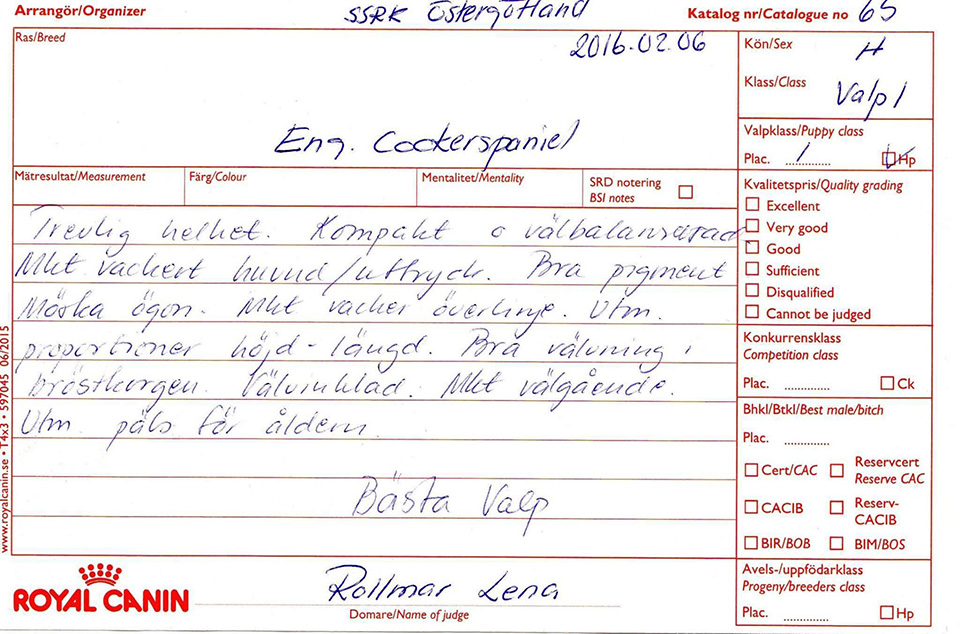 Arrangör/Organizer SSRK Östergötland Katalog nr/Catalogue no 65
Ras/Breed 2016.02.06 Kön/Sex H
Klass/Class Valp 1
Eng. Cockerspaniel
Valpklass/Puppy class
Plac. 1 Hp
Mätresultat/Measurement Färg/Colour Mentalitet/Mentality SRD notering
BSI notes
Kvalitetspris/Quality grading
Excellent
Very good
Good
Sufficient
Disqualified
Cannot be judged
Trevlig helhet. Kompakt o välbalanserad
Mkt vackert huvud/uttryck. Bra pigment
Mörka ögon. Mkt vacker överlinje. Utm.
proportioner höjd-längd. Bra välvning i
bröstkorgen. Välvinklad. Mkt välgående.
Utm päls för åldern.
Bästa Valp
Konkurrensklass
Competition class
Plac. Ck
Bhkl/Btkl/Best male/bitch
Plac.
Cert/CAC Reservcert
Reserve CAC
CACIB Reserv-
CACIB
BIR/BOB BIM/BOS
Avels-/uppfödarklass
Progeny/breeders class
Plac. Hp
www.royalcanin.se • T4x3 • 597045 06/2015
ROYAL CANIN
Rollmar Lena
Domare/Name of judge